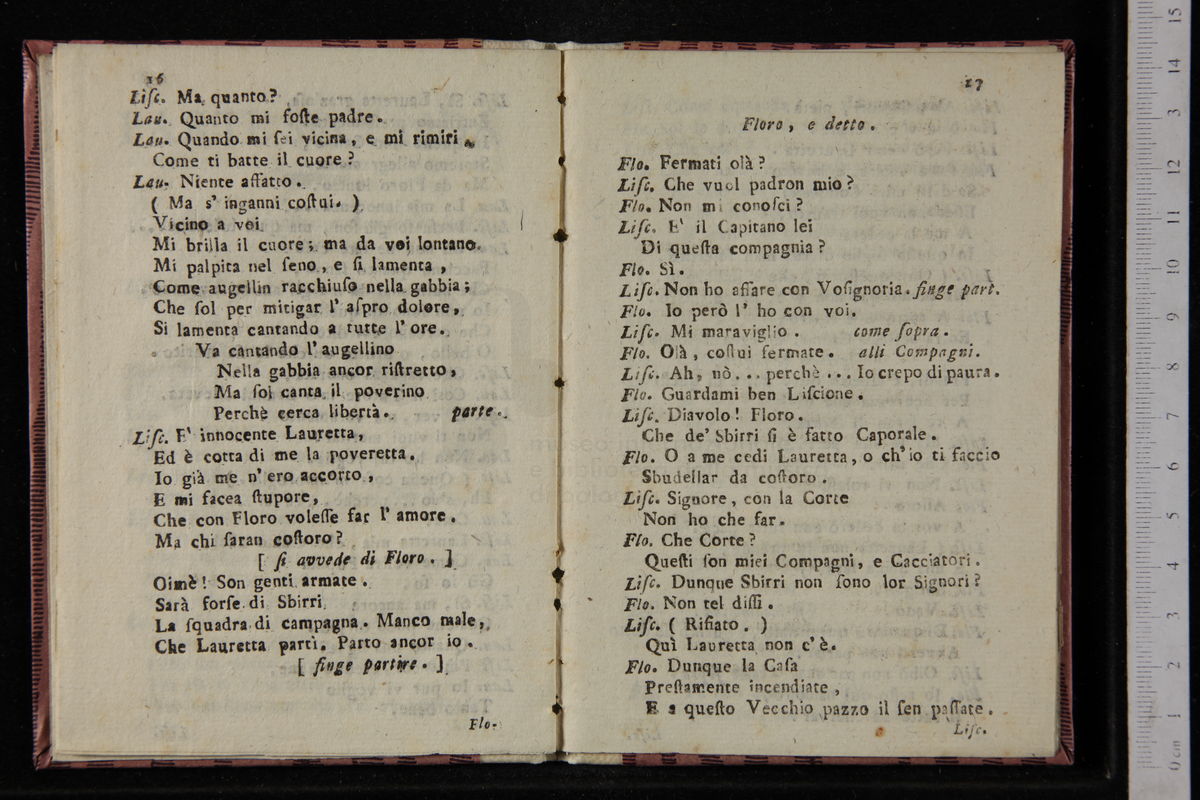 16
Liſc. Ma quanto?
Lau. Quanto mi foſte padre.
Lau. Quando mi ſei vicina, e mi rimiri
Come ti batte il cuore?
Lau. Niente affatto.
( Ma s' inganni coſtui. )
Vicino a voi
Mi brilla il cuore; ma da voi lontano
Mi palpita nel ſeno, e ſi lamenta,
Come augellin racchiuſo nella gabbia;
Che ſol per mitigar l' aſpro dolore,
Si lamenta cantando a tutte l' ore.
Va cantando l' augellino
Nella gabbia ancor riſtretto,
Ma ſol canta il poverino
Perchè cerca libertà. parte.
Liſc. E' innocente Lauretta,
Ed è cotta di me la poveretta.
Io già me n' ero accorto,
E mi facea ſtupore,
Che con Floro voleſſe far l' amore.
Ma chi ſaran coſtoro?
[ ſi avvede di Floro. ]
Oimè! Son genti armate.
Sarà forſe di Sbirri
La ſquadra di campagna. Manco male,
Che Lauretta partì. Parto ancor io.
[ finge partire. ]
Flo.
17
Floro, e detto.
Flo. Fermati olà?
Liſc. Che vuol padron mio?
Flo. Non mi conoſci?
Liſc. E' il Capitano lei
Di queſta compagnia?
Flo. Sì.
Liſc. Non ho affare con Voſignoria. finge part.
Flo. Io però l' ho con voi.
Liſc. Mi maraviglio. come ſopra.
Flo. Olà, coſtui fermate. alli Compagni.
Liſc. Ah, nò... perchè... Io crepo di paura.
Flo. Guardami ben Liſcione.
Liſc. Diavolo! Floro.
Che de' Sbirri ſi è fatto Caporale.
Flo. O a me cedi Lauretta, o ch'io ti faccio
Sbudellar da coſtoro.
Liſc. Signore, con la Corte
Non ho che far.
Flo. Che Corte?
Queſti ſon miei Compagni, e Cacciatori.
Liſc. Dunque Sbirri non ſono lor Signori?
Flo. Non tel diſſi.
Liſc. ( Rifiato. )
Quì Lauretta non c' è.
Flo. Dunque la Caſa
Preſtamente incendiate,
E a queſto Vecchio pazzo il ſen paſſate.
Liſc.
0 cm 1 2 3 4 5 6 7 8 9 10 11 12 13 14 15